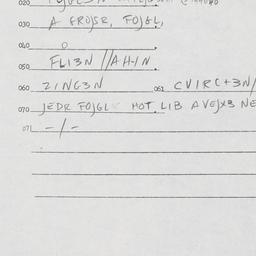 020
030 A FROJSR, FOJGL,
040 O
050 FLI3N //AH-IN.
060 ZING3N 061 CVIRC+3N/
070 JEDR FOJGL HOT LIB AVEJX3 NE
071 -/-